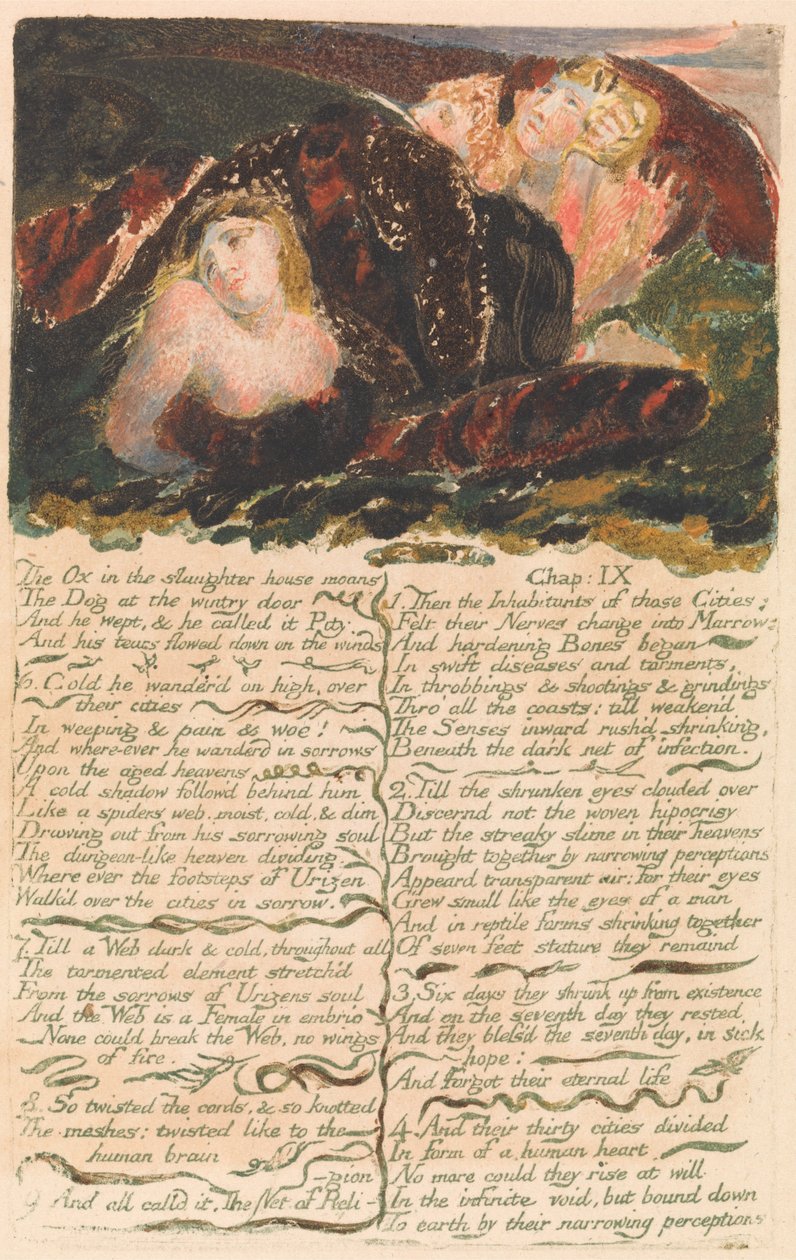 The Ox in the slaughter house moans
The Dog at the wintry door
And he wept, & he called it Pity
And his tears flowed down on the winds
6. Cold he wander'd on high, over
their cities
In weeping & pain & woe!
And where-ever he wanderd in sorrows
Upon the aged heavens
A cold shadow follow'd behind him
Like a spiders web, moist, cold, & dim
Drawing out from his sorrowing soul
The dungeon-like heaven dividing.
Where ever the footsteps of Urizen
Walk'd over the cities in sorrow.
7. Till a Web dark & cold, throughout all
The tormented element stretch'd
From the sorrows of Urizens soul
And the Web is a Female in embrio
None could break the Web, no wings
of fire.
8. So twisted the cords, & so knotted
The meshes: twisted like to the
human brain
-gion
9. And all calld it, The Net of Reli-
Chap: IX
1. Then the Inhabitants of those Cities:
Felt their Nerves change into Marrow
And hardening Bones began
In swift diseases and torments,
In throbbings & shootings & grindings
Thro' all the coasts: till weakend
The Senses inward rush'd shrinking,
Beneath the dark net of infection.
2. Till the shrunken eyes clouded over
Discernd not the woven hipocrisy
But the streaky slime in their heavens
Brought together by narrowing perceptions
Appeard transparent air; for their eyes
Grew small like the eyes of a man
And in reptile forms shrinking together
Of seven feet stature they remaind
3. Six days they shrunk up from existence
And on the seventh day they rested
And they bless'd the seventh day, in sick
hope:
And forgot their eternal life
4. And their thirty cities divided
In form of a human heart
No more could they rise at will
In the infinite void, but bound down
To earth by their narrowing perceptions